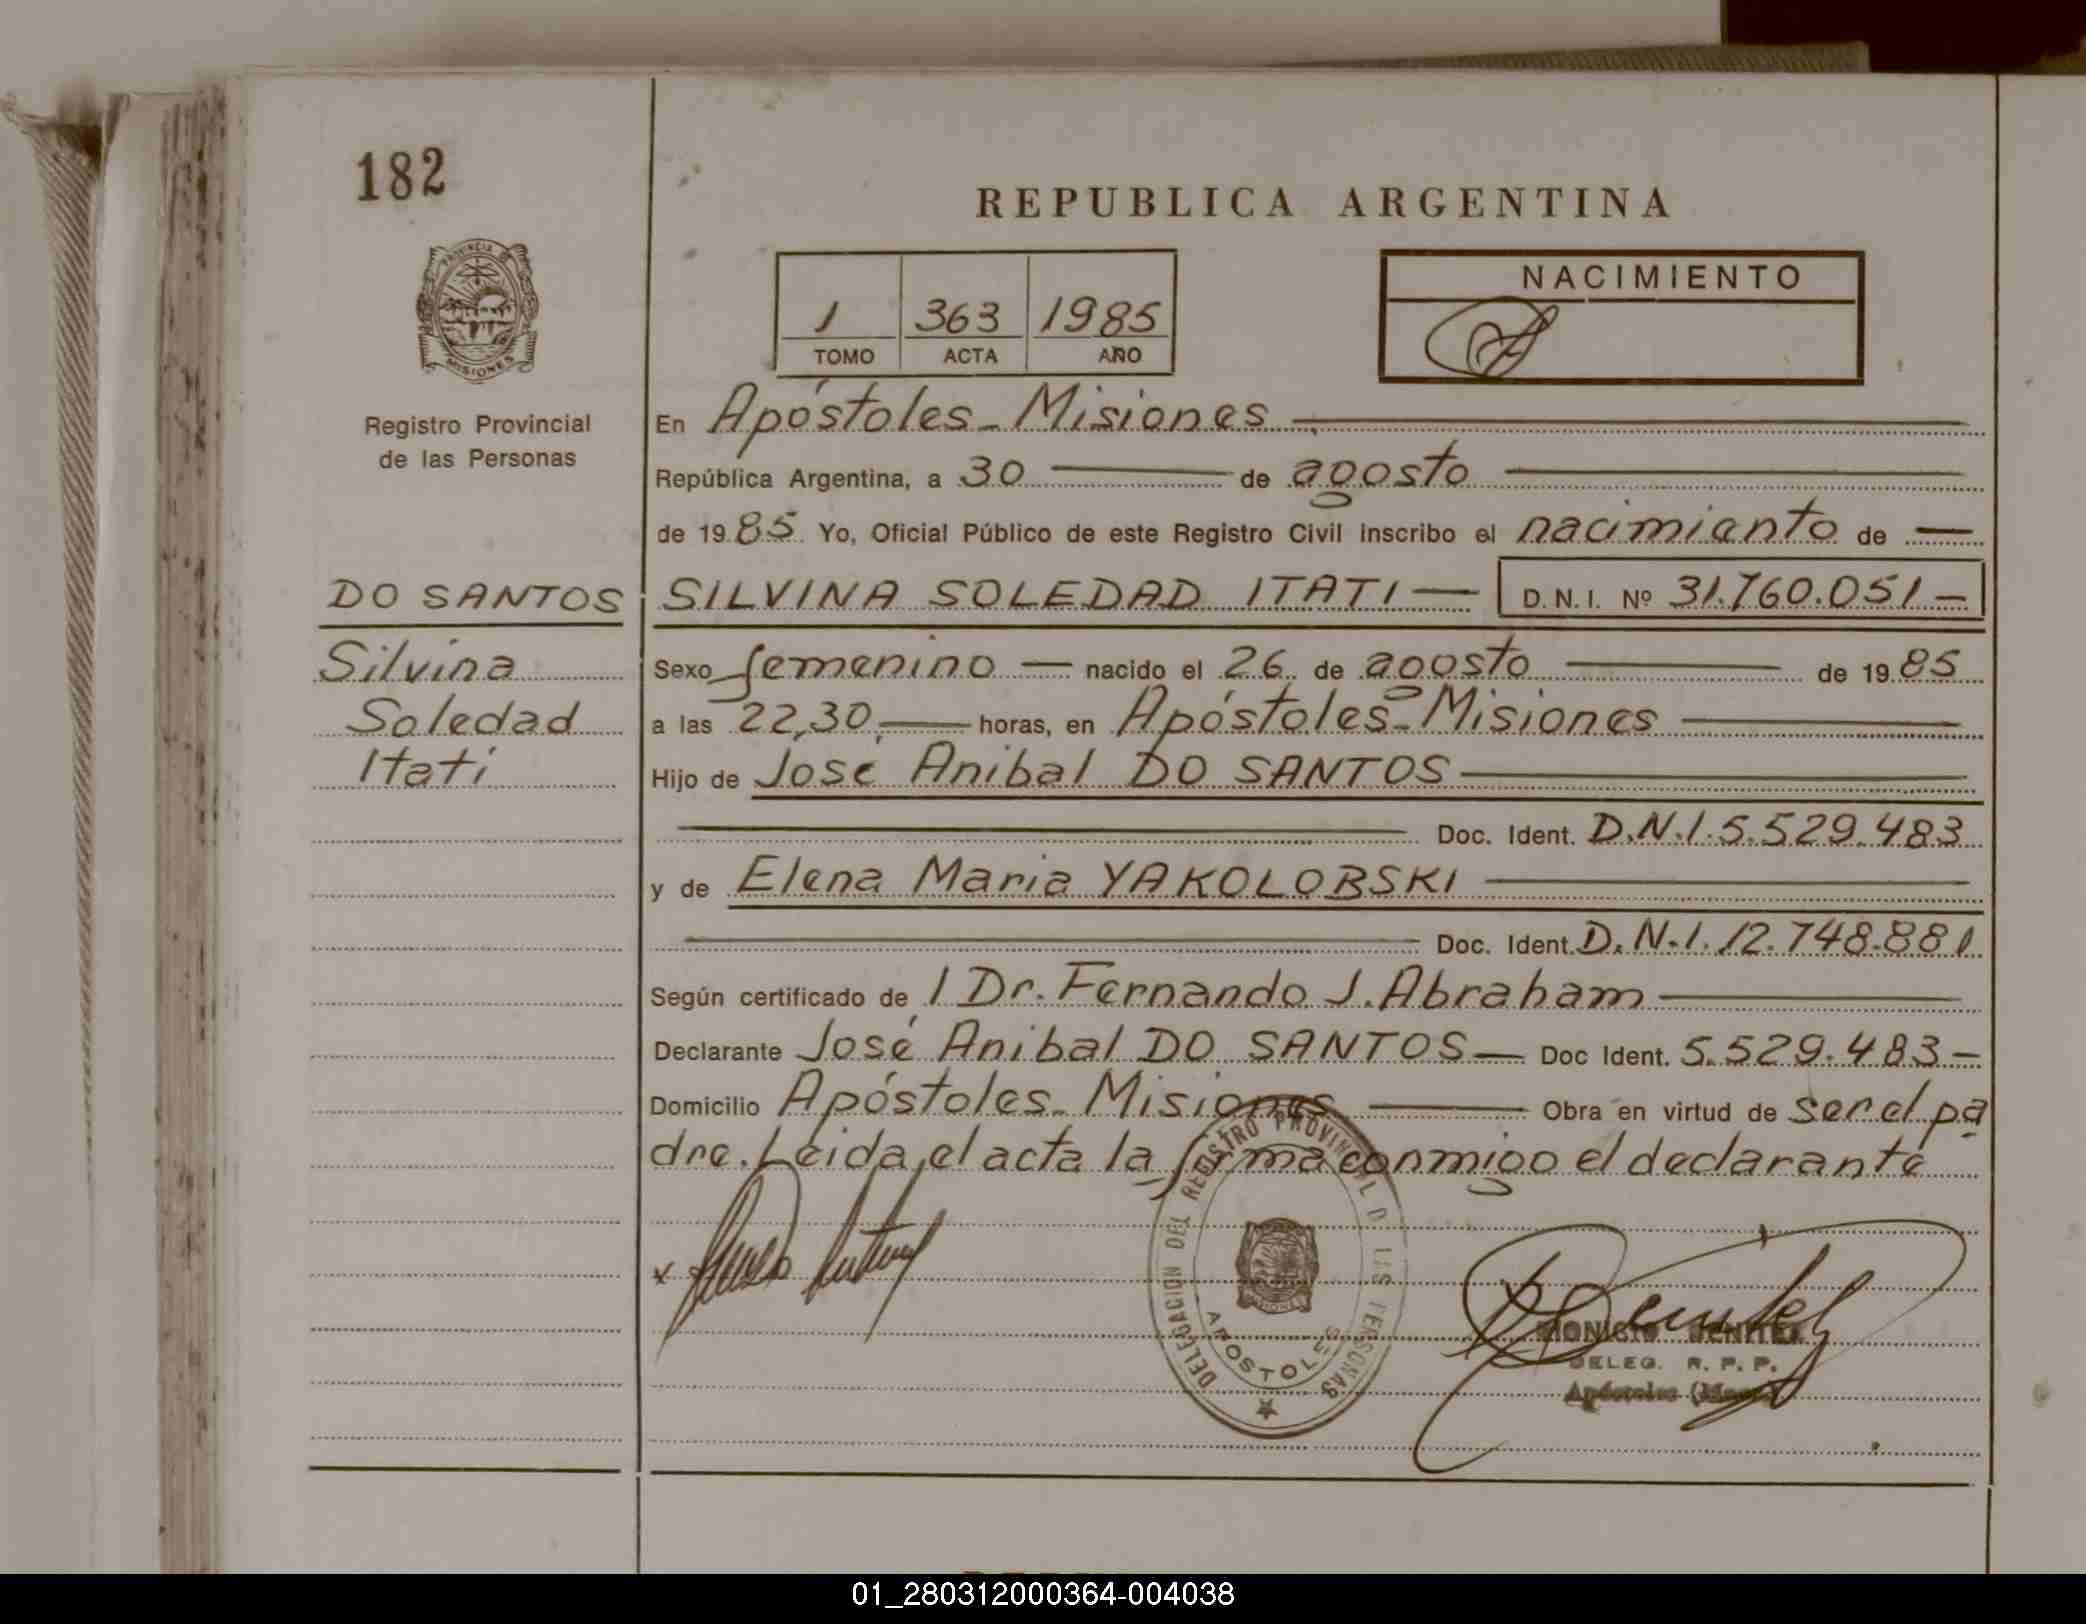 182
REPUBLICA ARGENTINA
PROVINCIA
MISIONES
NACIMIENTO
1 363 1985
TOMO ACTA AÑO
Registro Provincial
de las Personas
En Apóstoles - Misiones
República Argentina, a 30 de agosto
de 1985 Yo, Oficial Público de este Registro Civil inscribo el nacimiento de
DO SANTOS SILVINA SOLEDAD ITATI D.N.I. Nº 31.760.051
Silvina Sexo femenino nacido el 26 de agosto de 1985
Soledad a las 22,30 horas, en Apóstoles - Misiones
Itatí Hijo de José Anibal DO SANTOS
Doc. Ident. D.N.I. 5.529.483
y de Elena Maria YAKOLOBSKI
Doc. Ident. D.N.I. 12.748.881
Según certificado de / Dr. Fernando J. Abraham
Declarante José Anibal DO SANTOS Doc Ident. 5.529.483
Domicilio Apóstoles - Misiones Obra en virtud de ser el pa
dre. Leida el acta la firma conmigo el declarante
DELEGACION DEL REGISTRO PROVINCIAL DE LAS PERSONAS
APOSTOLES
DIONICIO BENITEZ
DELEG. R. P. P.
Apóstoles (Mnes.)
01_280312000364-004038